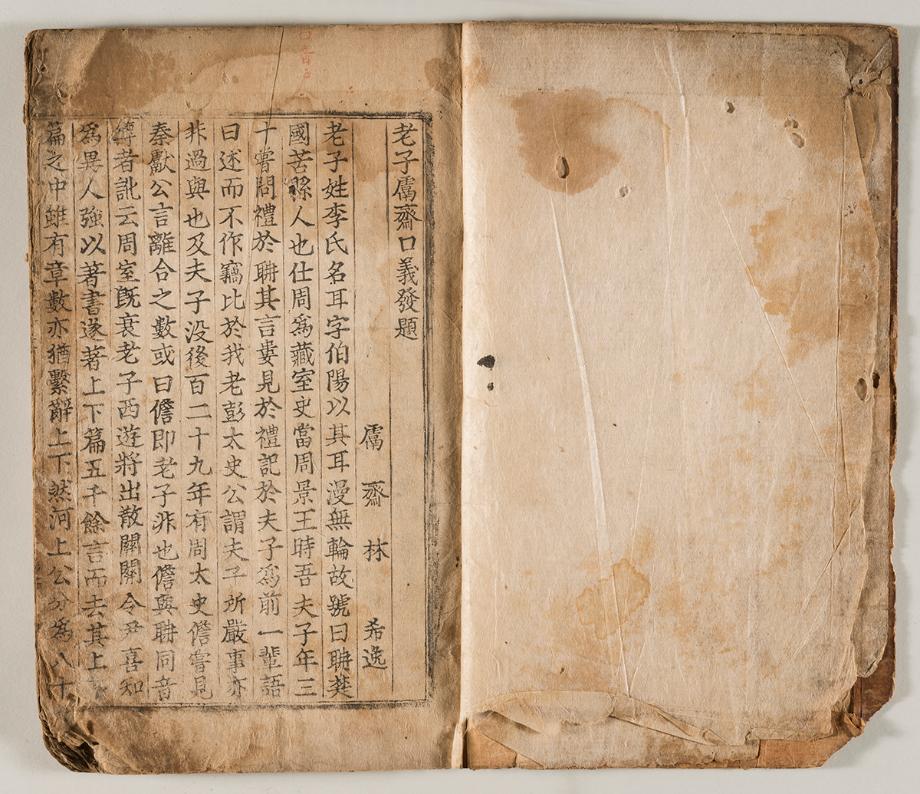 老子鬳齋口義發題
鬳齋林希逸
老子姓李氏名耳字伯陽以其耳漫無輪故號曰耼楚
國苦縣人也仕周爲藏室史當周景王時吾夫子年三
十嘗問禮於耼其言屢見於禮記於夫子爲前一輩語
曰述而不作竊比於我老彭太史公謂夫子所嚴事亦
非過與也及夫子没後百二十九年有周太史儋嘗見
秦獻公言離合之數或曰儋即老子非也儋與耼同音
傳者訛云周室旣衰老子西遊將出散關關令尹喜知
爲異人強以著書遂著上下篇五千餘言而去其上
篇之中雖有章數亦猶繫辭上下然河上公分爲八十